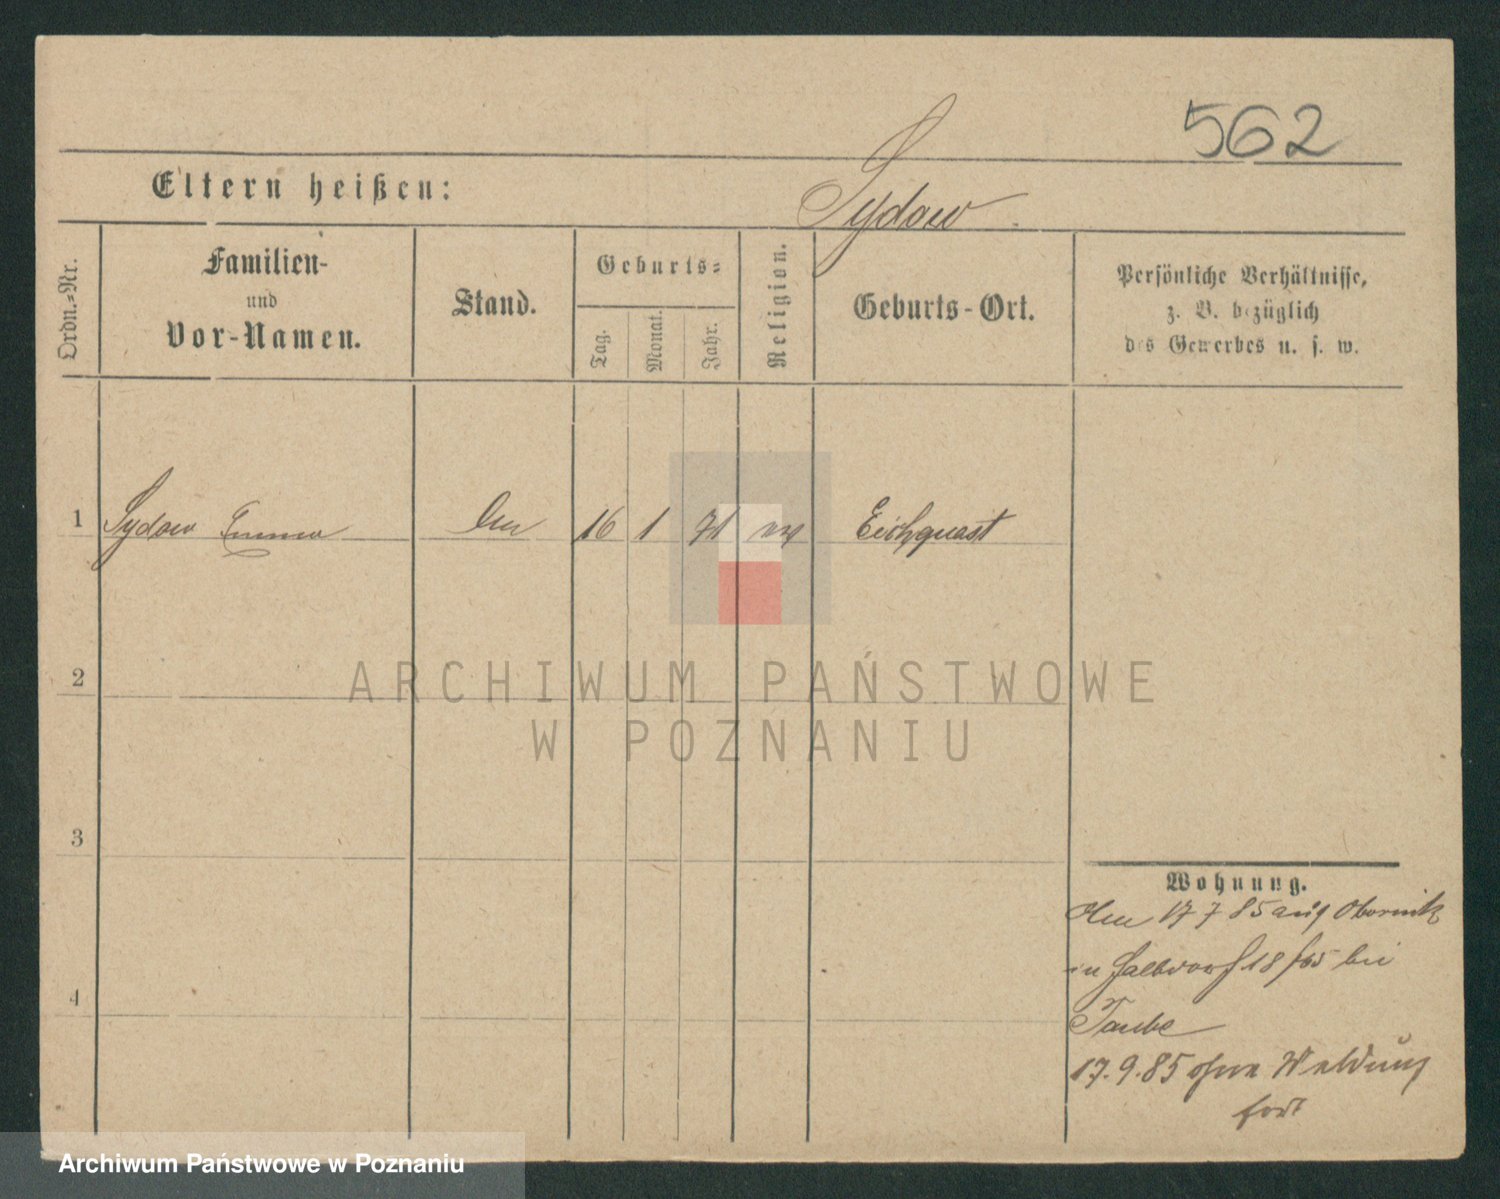 562
Eltern heißen:
Sydow.
Ordn.=Nr.
Familien-
und
Vor-Namen.
Stand.
Geburts=
Tag.
Monat.
Jahr.
Religion.
Geburts-Ort.
Persönliche Verhältnisse,
z. B. bezüglich
des Gewerbes u. s. w.
1 Sydow Emma 16 1 71 Eichquast
2
ARCHIWUM PAŃSTWOWE
W POZNANIU
3
4
Wohnung.
17 7 85 aus Obornik
in Halbdorf 18 bei
Taube
17.9.85 ohne Meldung
fort
Archiwum Państwowe w Poznaniu